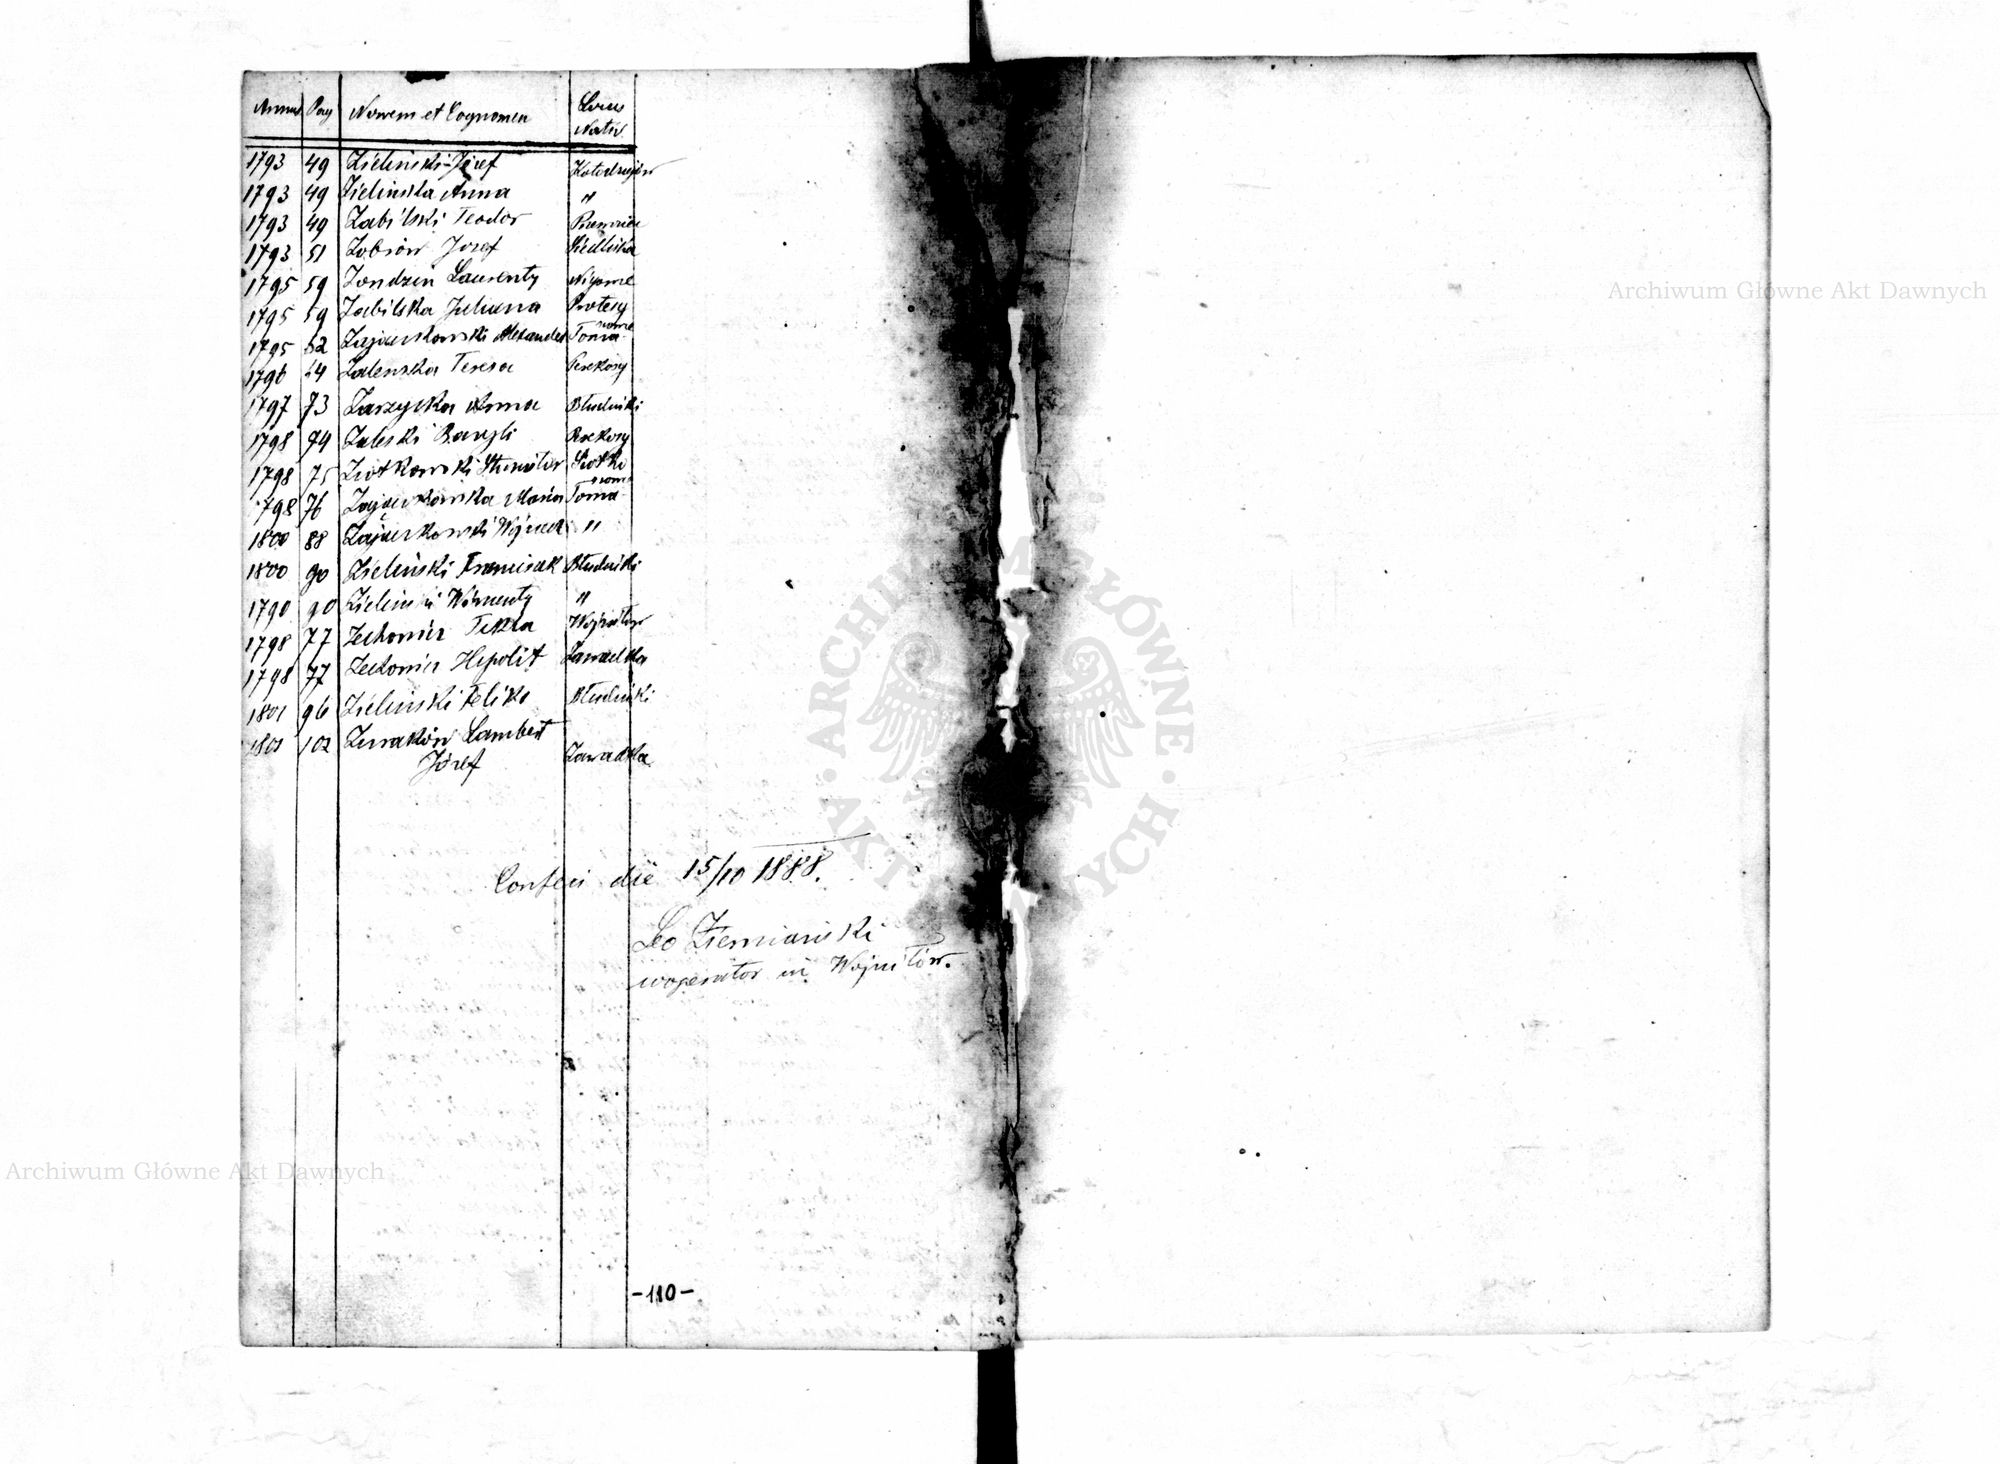 Annus Pag Nomen et Cognomen Locus Nativ.
1793 49 Zieliński Józef Kołodziejów
1793 49 Zielinska Anna "
1793 49 Zabilski Teodor
1793 51 Zobsow Josef Siedliska
1795 59 Zondzin Laurenty
1795 59 Zabilska Juliana
1795 62 Zajaczkowski Alexander Toma
1796 64 Zalenska Teresa Perekosy
1797 73 Zarzycka Anna Błudniki
1798 74 Zaleski Bazyli Perekosy
1798 75 Ziotkowski
1798 76 Zajaczkowska Maria Toma
1800 88 Zajaczkowski "
1800 90 Zieliński Franciszek Błudniki
1790 90 "
1798 77 Zechowicz Tekla Wojniłow
1798 77 Zechowicz Hipolit Zawadka
1801 96 Zieliński Feliks Błudniki
1801 102 Zurakow Lambert
Józef Zawadka
Confeci die 15/10 1888.
Leo Ziemiański
cooperator in Wojniłów.
-110-
Archiwum Główne Akt Dawnych
Archiwum Główne Akt Dawnych
ARCHIWUM GŁÓWNE · AKT DAWNYCH ·